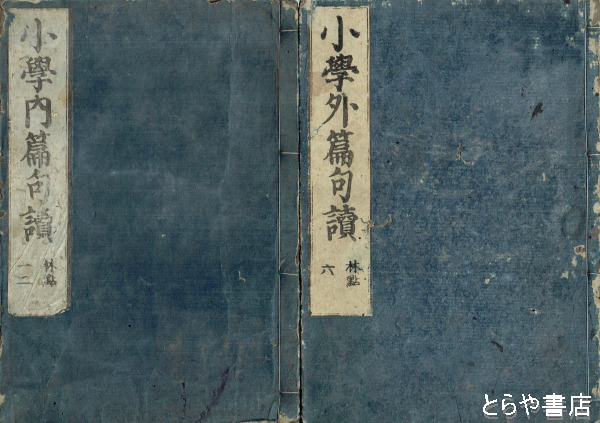 小學外篇句讀
林點
六
小學內篇句讀
林點
二
とらや書店